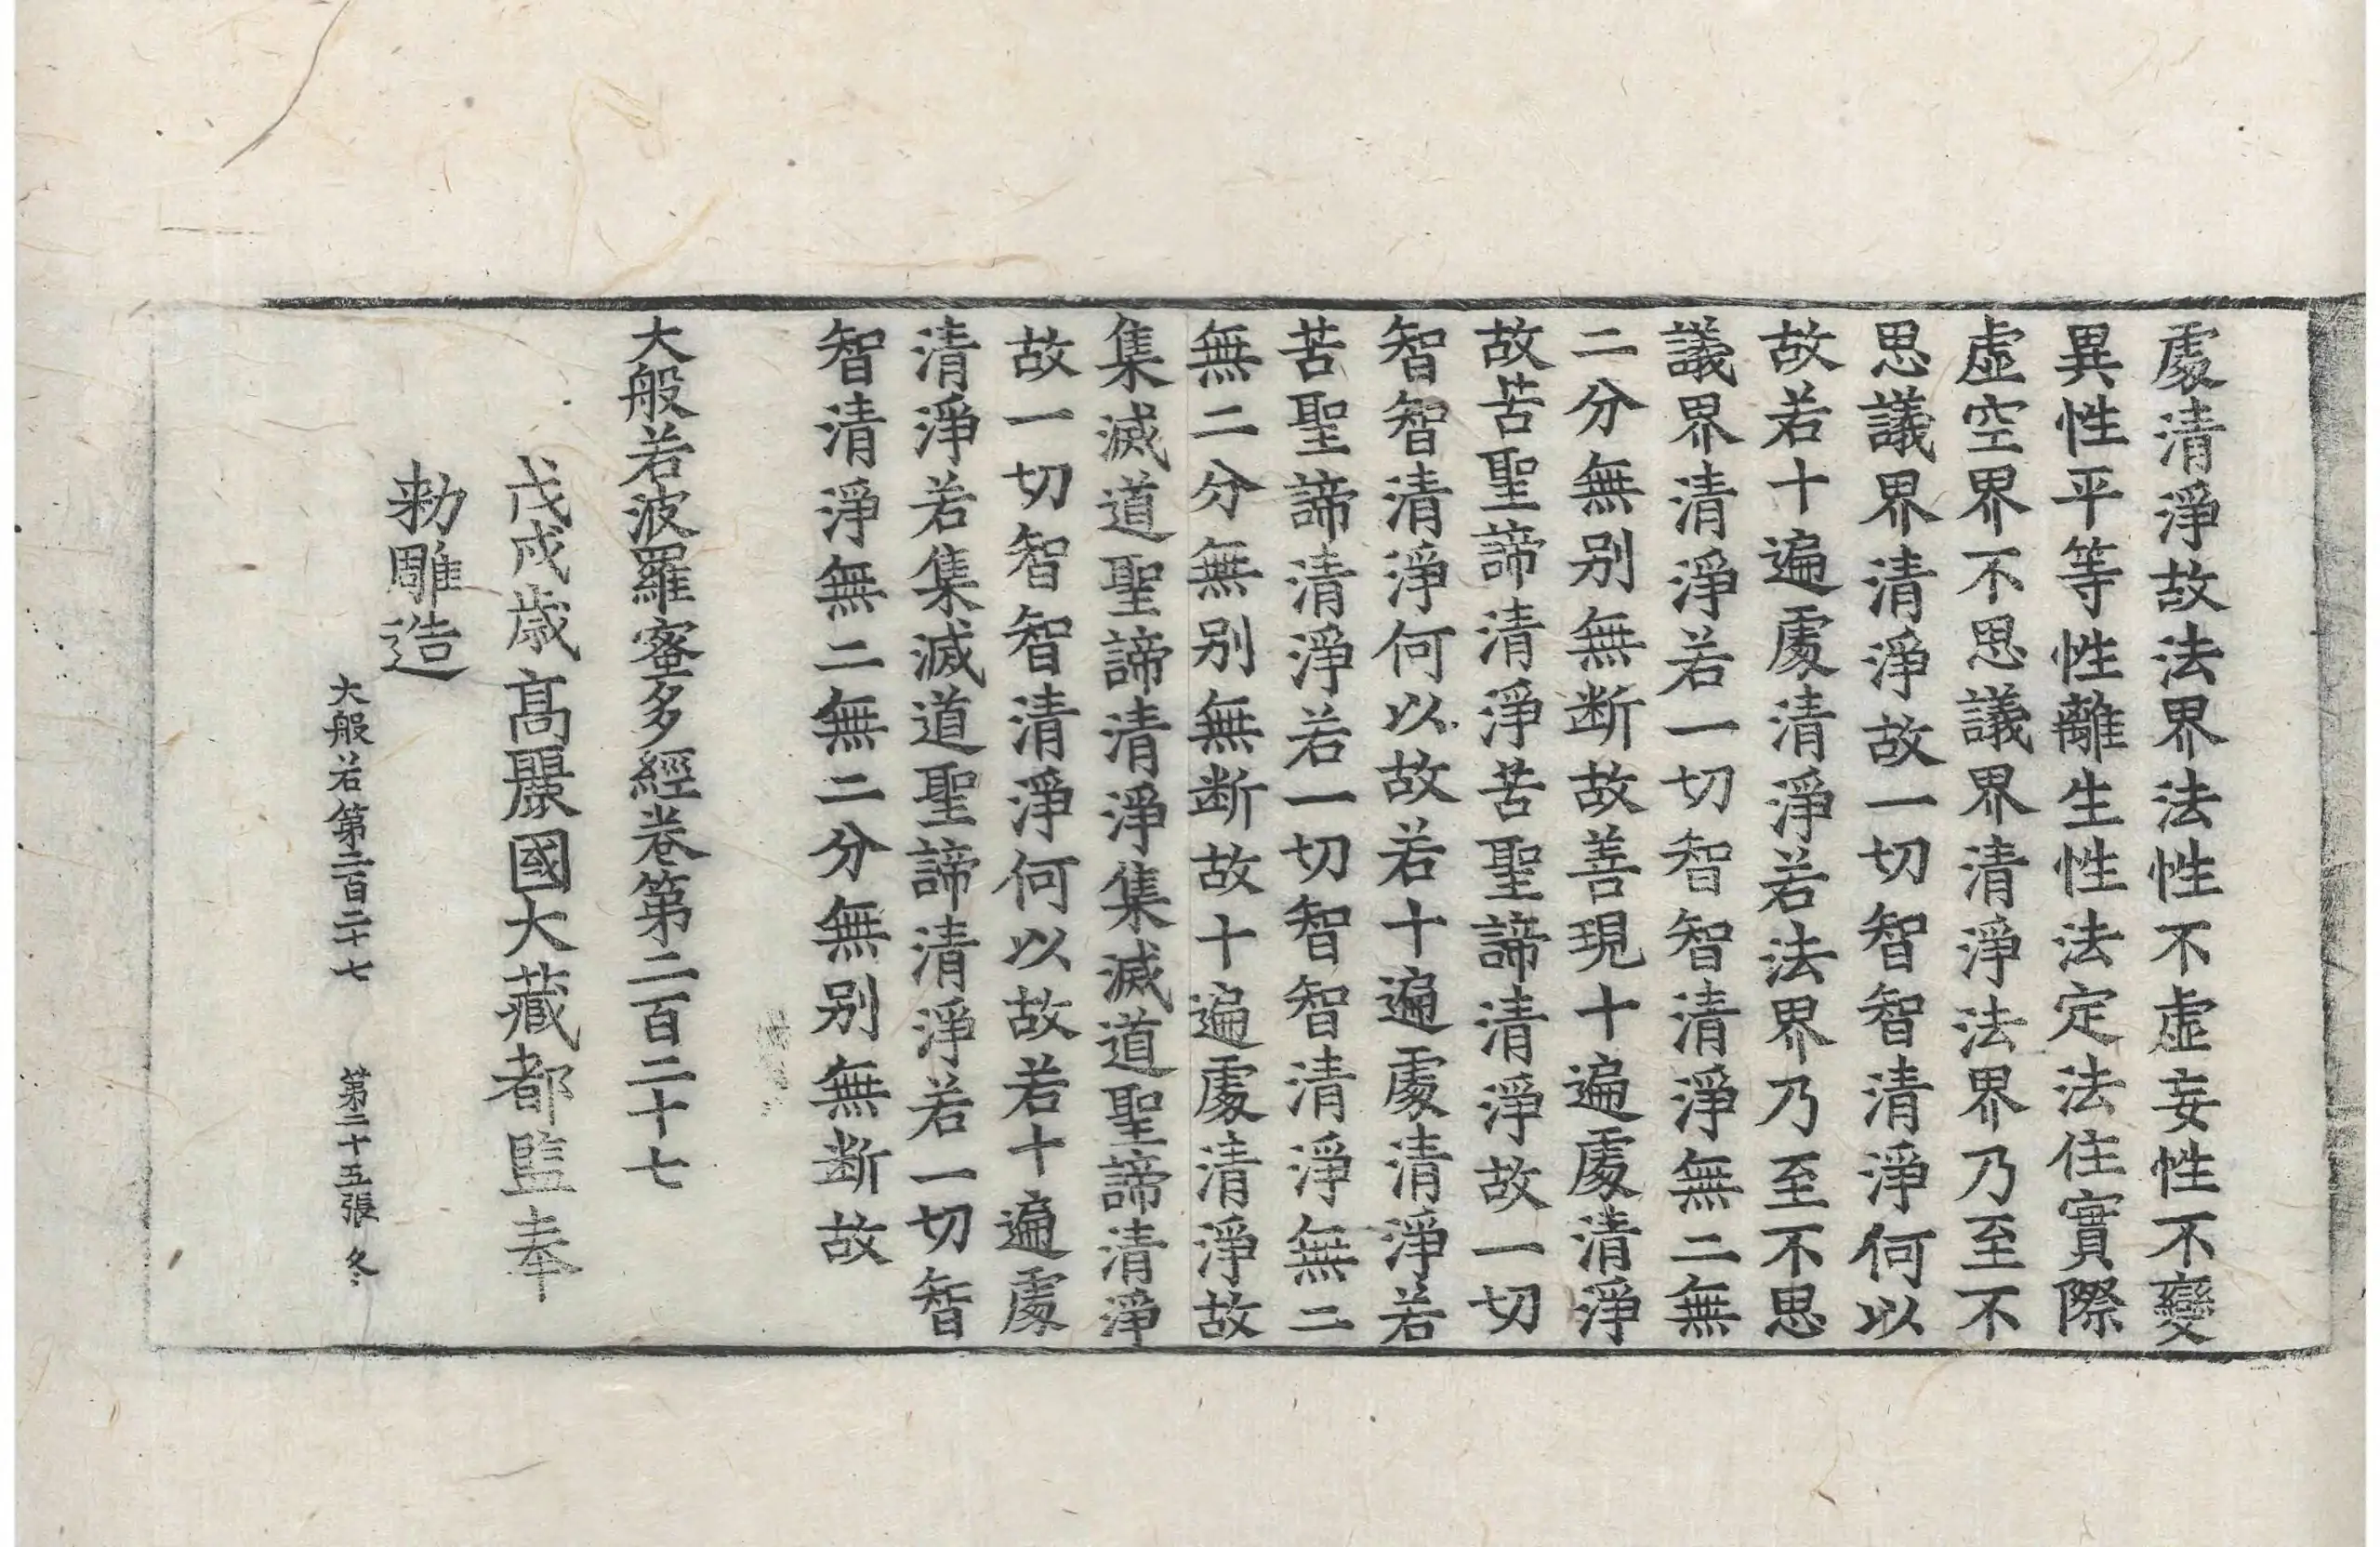 處清淨故法界法性不虛妄性不變
異性平等性離生性法定法住實際
虛空界不思議界清淨法界乃至不
思議界清淨故一切智智清淨何以
故若十遍處清淨若法界乃至不思
議界清淨若一切智智清淨無二無
二分無別無斷故善現十遍處清淨
故苦聖諦清淨苦聖諦清淨故一切
智智清淨何以故若十遍處清淨若
苦聖諦清淨若一切智智清淨無二
無二分無別無斷故十遍處清淨故
集滅道聖諦清淨集滅道聖諦清淨
故一切智智清淨何以故若十遍處
清淨若集滅道聖諦清淨若一切智
智清淨無二無二分無別無斷故
大般若波羅蜜多經卷第二百二十七
戊戌歲高麗國大藏都監奉
勅雕造
大般若第二百二十七 第二十五張 冬